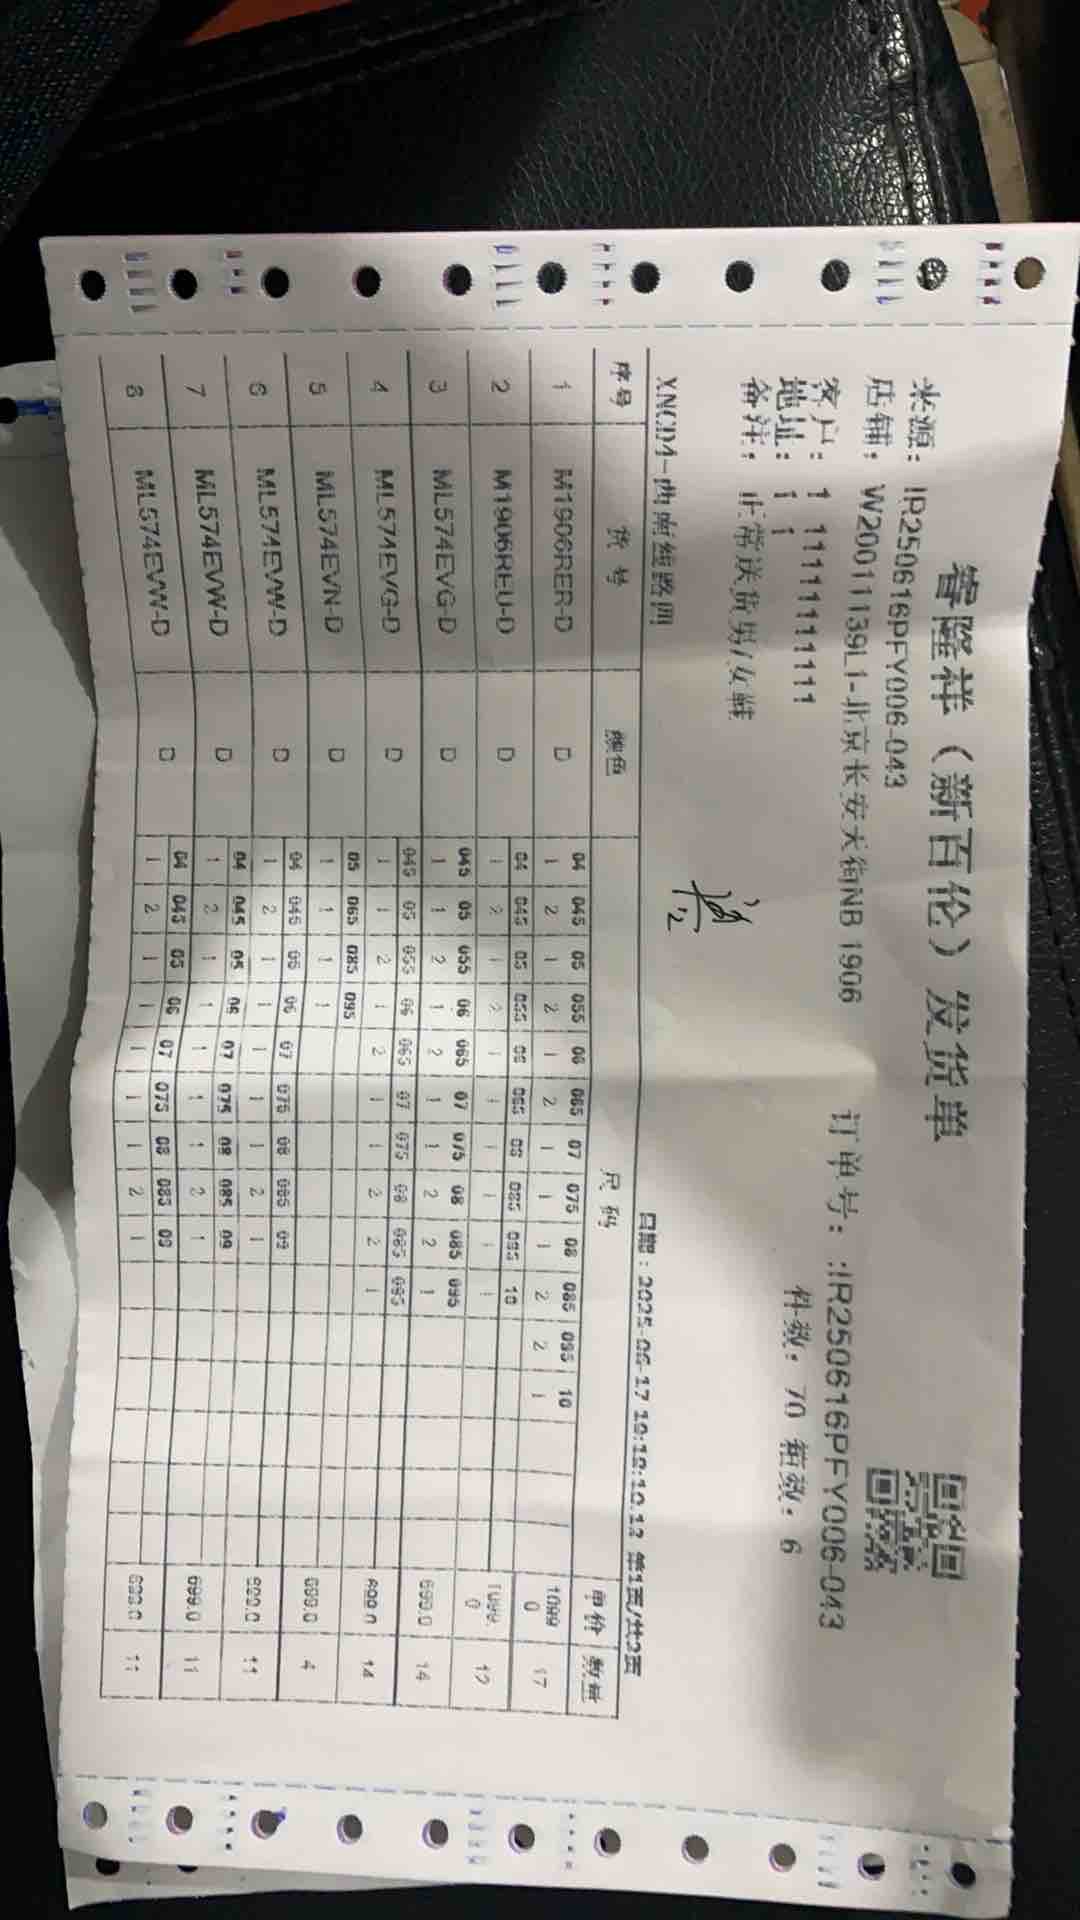 睿隆祥（新百伦）发货单
来源：IR250616PFY006-043
订单号：:IR250616PFY006-043
店铺：W20011139L1-北京长安天街NB 1906
客户：1 11111111111
件数：70 箱数：6
地址：1 1
备注：正常送货男/女鞋
XNCD4-西南线路四
日期：2025-06-17 10:10:10.13 第1页/共2页
序号 货号 颜色 尺码 单价 数量
04 045 05 055 06 065 07 075 08 085 095 10
1 M1906RER-D D 1 2 1 2 1 2 1 1 1 2 2 1 1099.0 17
04 045 05 055 06 065 08 085 095 10
2 M1906REU-D D 1 2 1 2 1 1 1 1 1 1 1099.0 12
045 05 055 06 065 07 075 08 085 095
3 ML574EVG-D D 1 1 2 1 2 1 1 2 2 1 699.0 14
045 05 055 06 065 07 075 08 085 095
4 ML574EVG-D D 1 1 2 1 2 1 1 2 2 1 699.0 14
05 065 085 095
5 ML574EVN-D D 1 1 1 1 699.0 4
04 045 05 06 07 075 08 085 09
6 ML574EVW-D D 1 2 1 1 1 1 1 2 1 699.0 11
04 045 05 06 07 075 08 085 09
7 ML574EVW-D D 1 2 1 1 1 1 1 2 1 699.0 11
04 045 05 06 07 075 08 085 09
8 ML574EVW-D D 1 2 1 1 1 1 1 2 1 699.0 11